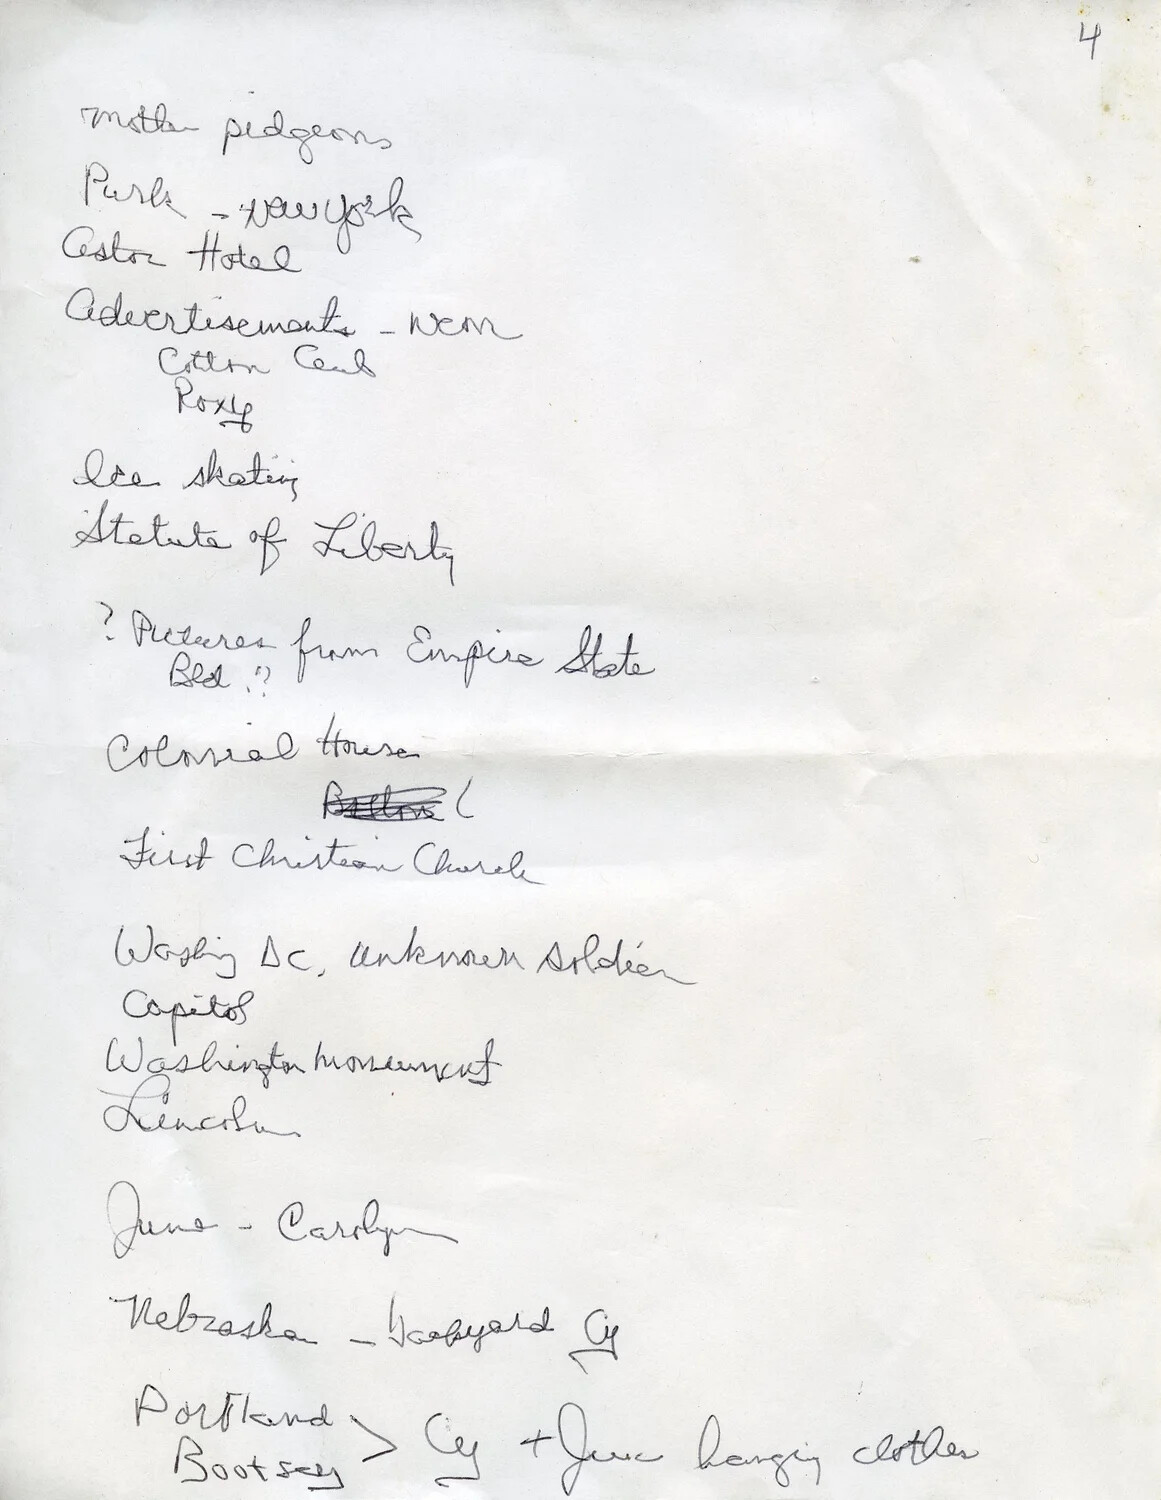 4
Mother pidgeons
Park - New York
Astor Hotel
Advertisements - Neon
Cotton Club
Roxy
Ice skating
Statute of Liberty
? Pictures from Empire State
Bld.??
Colonial House
(
First Christian Church
Washing DC, unknown soldier
Capitol
Washington Monument
Lincoln
June - Carolyn
Nebraska - backyard Cy
Portland
Bootsey > Cy + June hanging clothes